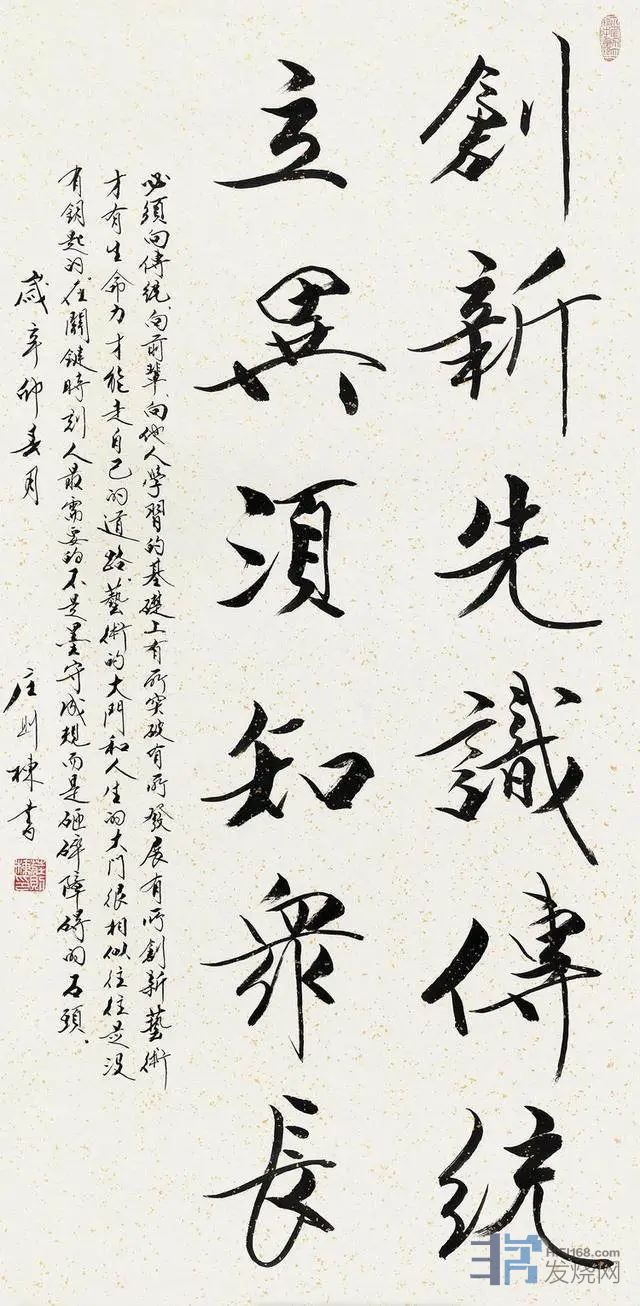 創新先識傳統
立異須知眾長
必須向傳統向前輩向他人學習的基礎上有所突破有所發展有所創新藝術
才有生命力才能走自己的道路藝術的大門和人生的大門很相似往往是沒
有鑰匙的在關鍵時刻人最需要的不是墨守成規而是砸碎障碍的石頭
歲辛卯春月
庄則棟書
莊則棟印
HIFI168.com
发烧网